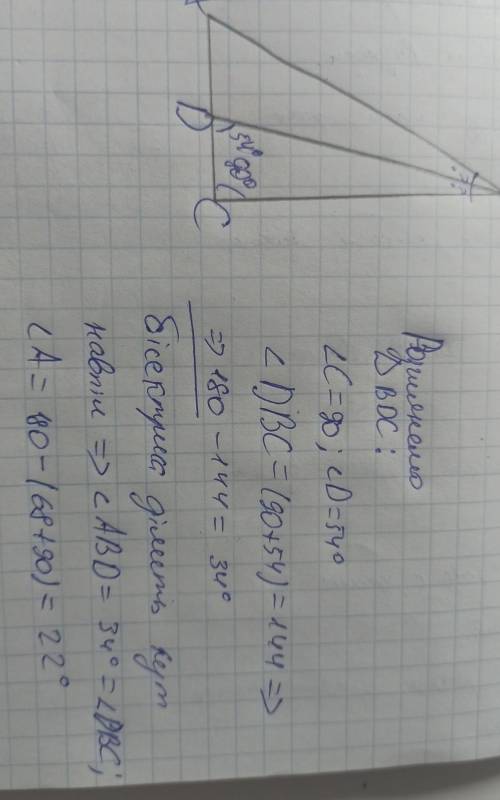 D
54°
90°
C
Розглянемо
Δ BDC:
∠C = 90; ∠D = 54°
∠DBC = (90+54) = 144 =>
=> 180 - 144 = 34°
бісектриса ділить кут
навпіл => ∠ABD = 34° = ∠DBC;
∠A = 180 - (68+90) = 22°